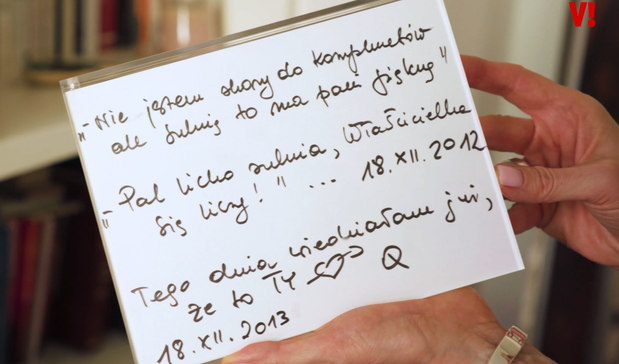 V!
„Nie jestem skory do komplementów
ale suknię to ma pani piękną"
„Pal licho suknia, Właścicielka
się liczy!" ... 18.XII.2012
Tego dnia wiedziałam już,
że to Ty
18.XII.2013